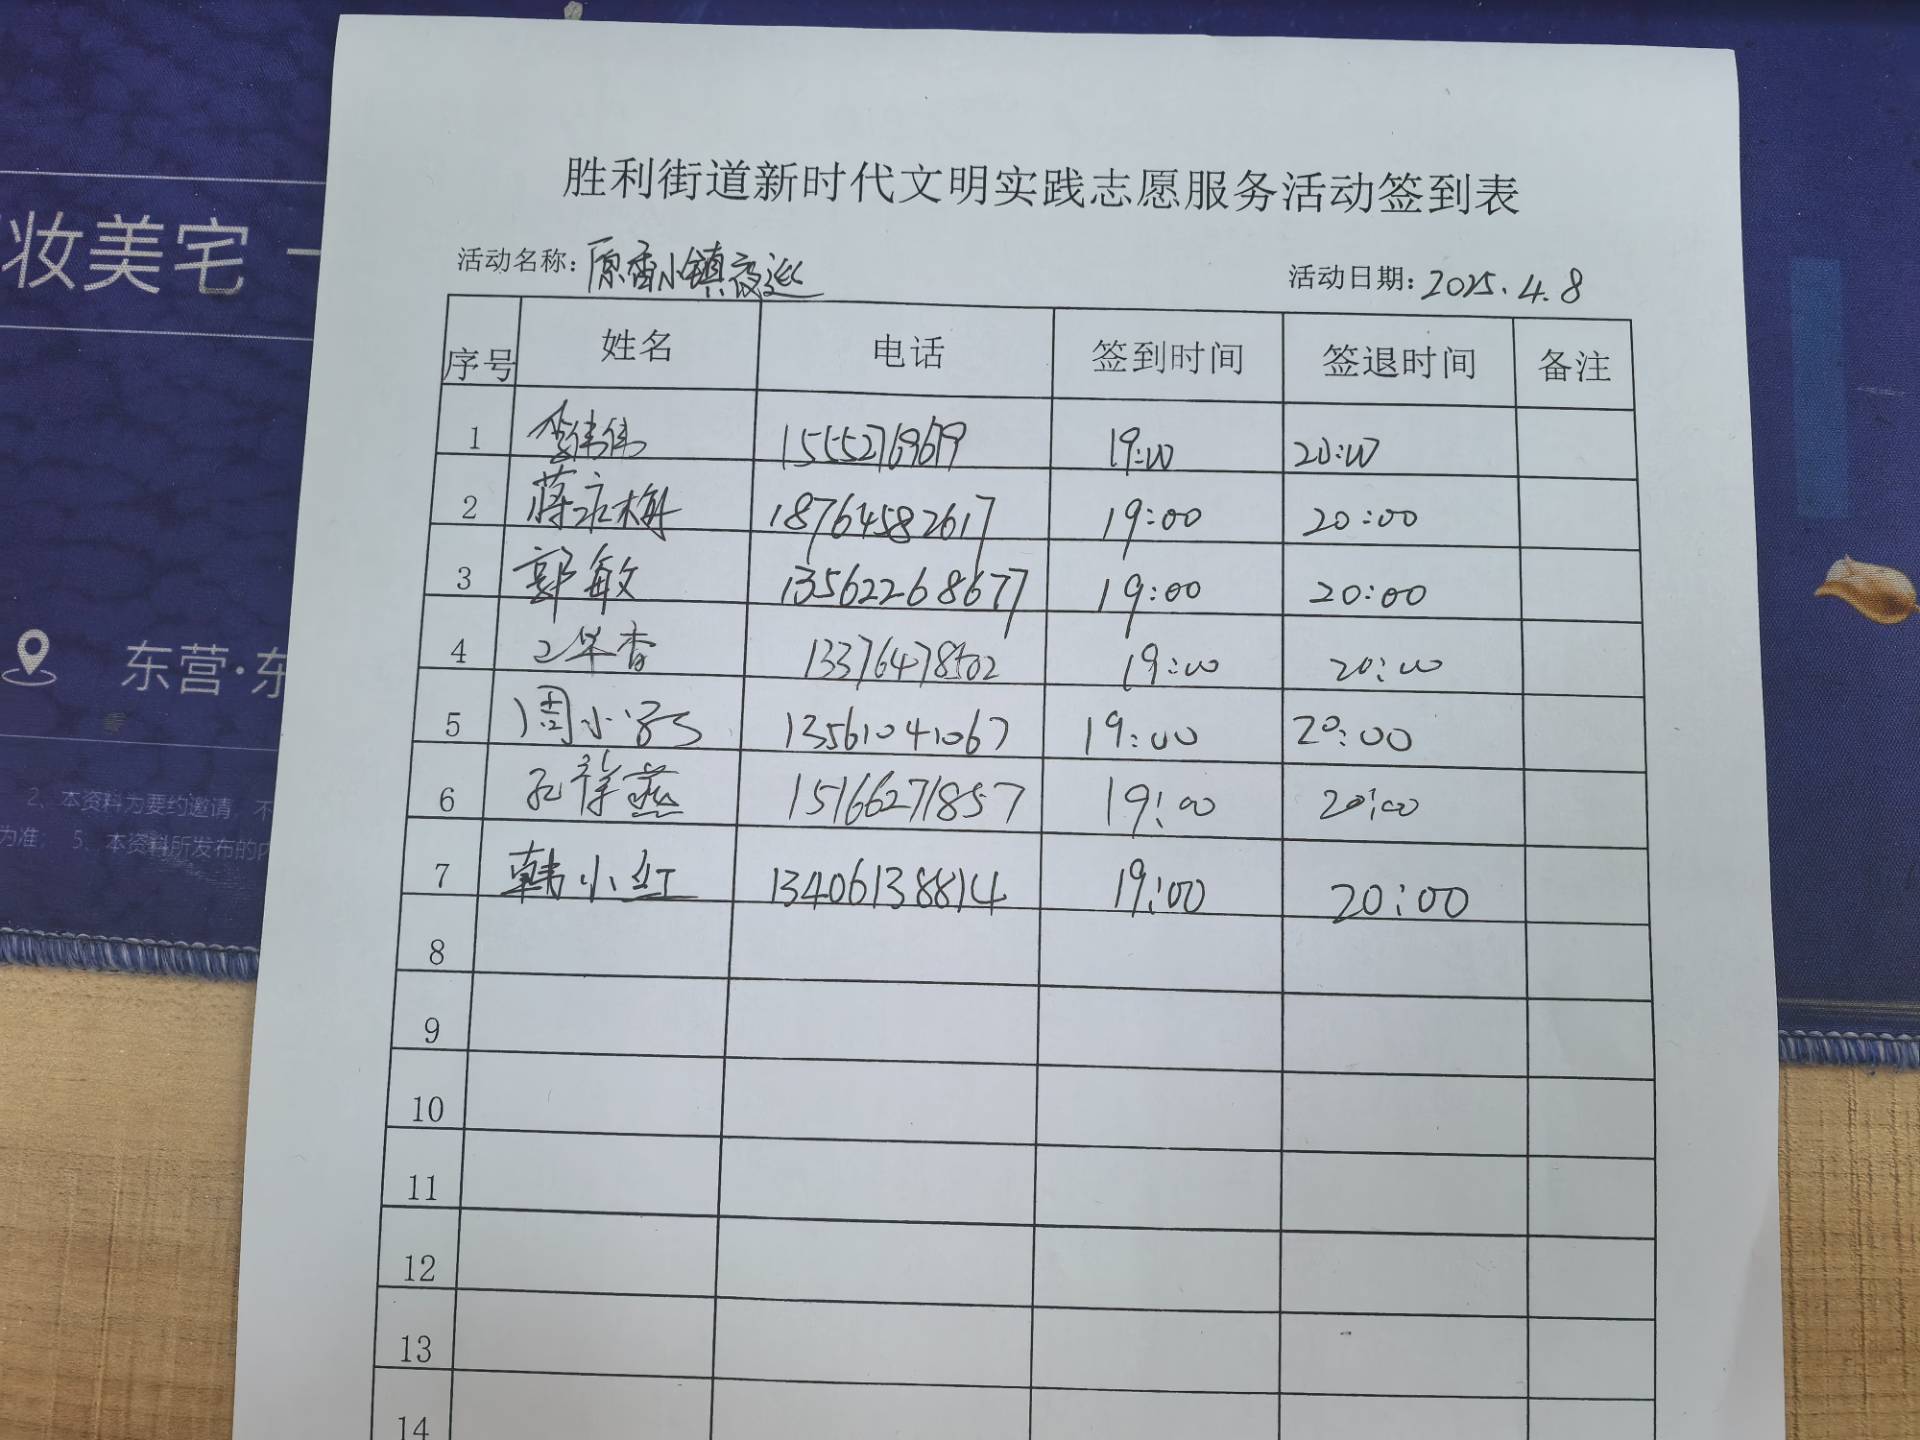 胜利街道新时代文明实践志愿服务活动签到表
活动名称：原香小镇夜巡 活动日期：2025.4.8
序号 姓名 电话 签到时间 签退时间 备注
1 李伟伟 15552719679 19:00 20:00
2 蒋永梅 18764582617 19:00 20:00
3 郭敏 13562268677 19:00 20:00
4 13376478502 19:00 20:00
5 周小 13561041067 19:00 20:00
6 孔祥燕 15166271857 19:00 20:00
7 韩小红 13406138814 19:00 20:00
8
9
10
11
12
13
14
妆美宅
东营·东
2、本资料为要约邀请，不
为准； 5、本资料所发布的内